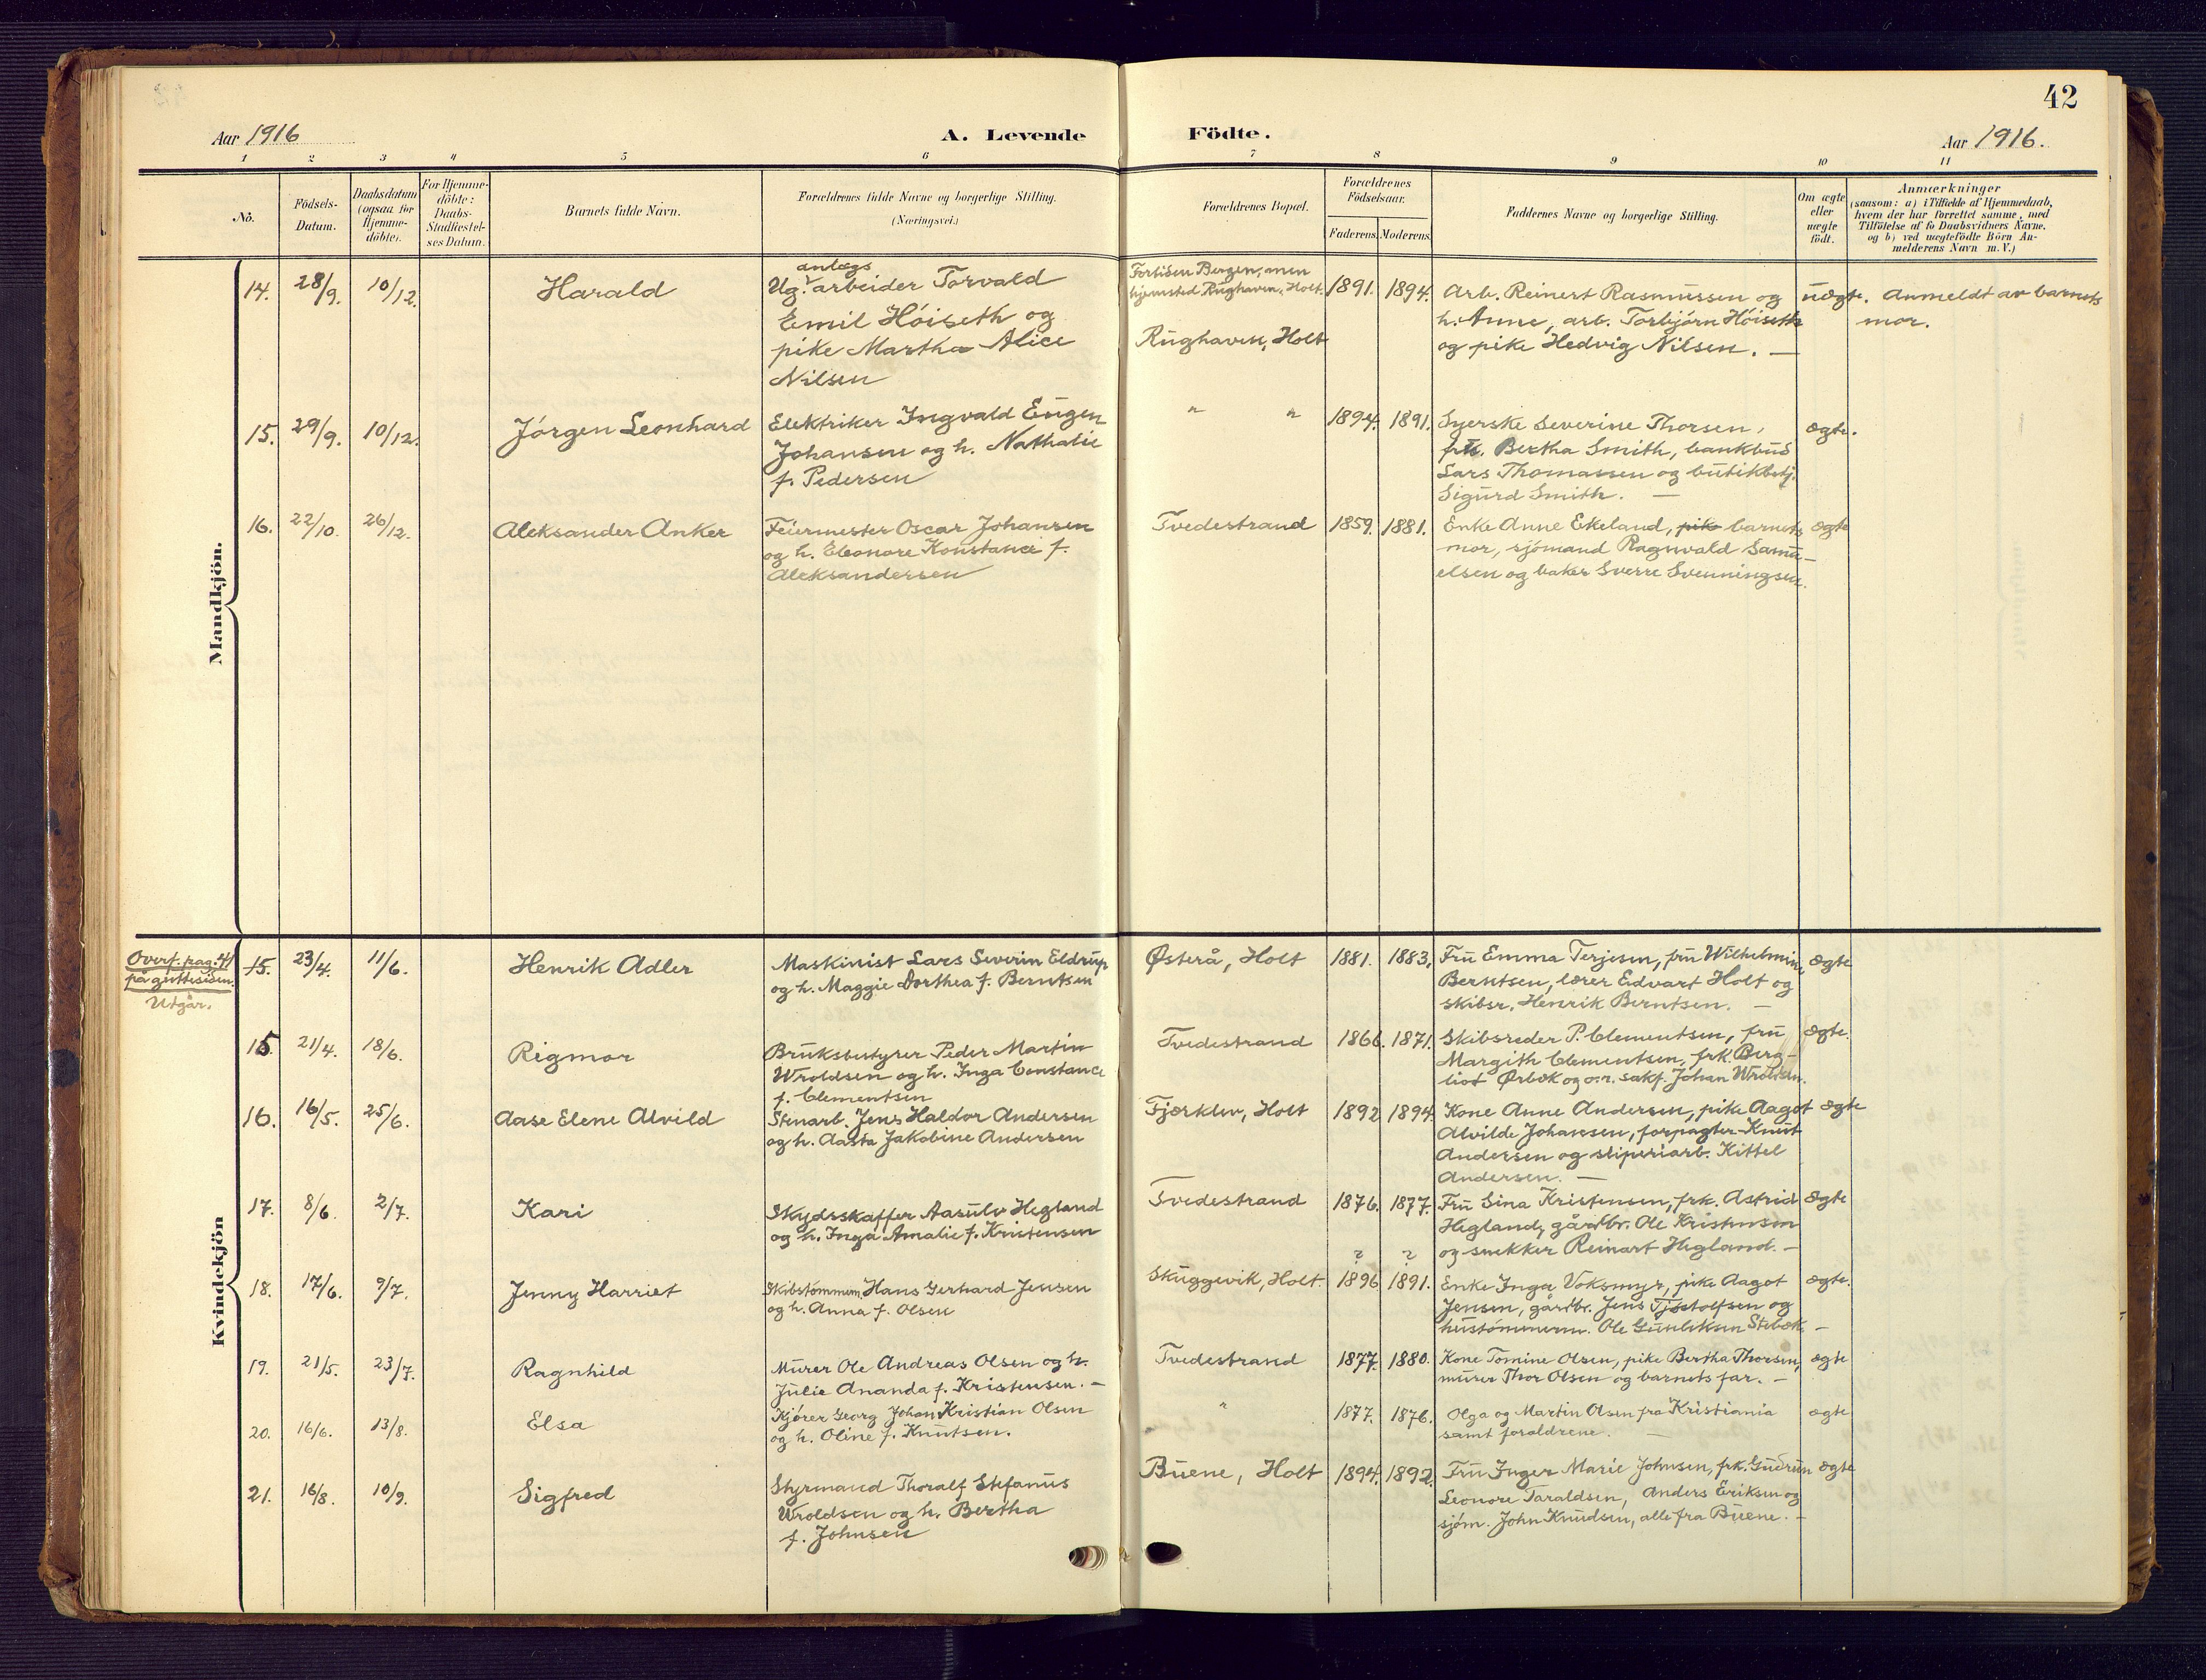 42
Aar 1916
A. Levende
Födte.
Aar 1916.
1 2 3 4 5 6 7 8 9 10 11
No.
Födsels-
Datum.
Daabsdatum
(ogsaa for
Hjemme-
döbte).
For Hjemme-
döbte:
Daabs-
Stadfæstel-
ses Datum.
Barnets fulde Navn.
Forældrenes fulde Navne og borgerlige Stilling.
(Næringsvei.)
Forældrenes Bopæl.
Forældrenes
Födselsaar.
Faderens. Moderens.
Faddernes Navne og borgerlige Stilling.
Om ægte
eller
uægte
födt.
Anmærkninger
(saasom: a) i Tilfælde af Hjemmedaab,
hvem der har forrettet samme, med
Tilföielse af to Daabsvidners Navne,
og b) ved uægtefödte Börn An-
melderens Navn m. V.)
Mandkjön.
14. 28/9. 10/12. Harald
anlægs
Ug. arbeider Torvald
Emil Höiseth og
pike Martha Alice
Nilsen
Fortiden Bergen, men
hjemsted Rughaven, Holt.
Rughaven, Holt
1891. 1894.
Arb. Reinert Rasmussen og
h. Anne, arb. Torbjörn Höiseth
og pike Hedvig Nilsen. —
uægte.
Anmeldt av barnets
mor.
15. 29/9. 10/12. Jörgen Leonhard
Elektriker Ingvald Eugen
Johansen og h. Nathalie
f. Pedersen
" "
1894. 1891.
Syerske Severine Thorsen,
frk. Bertha Smith, bankbud
Lars Thomassen og butikbetj.
Sigurd Smith. —
ægte.
16. 22/10. 26/12. Aleksander Anker
Feiermester Oscar Johansen
og h. Eleonore Konstance f.
Aleksandersen
Tvedestrand
1859. 1881.
Enke Anne Ekeland, pike barnets
mor, sjömand Ragnvald Samu-
elsen og baker Sverre Svenningsen.
ægte
Kvindekjön
Overf. pag. 41
på guttesiden.
Utgår.
15. 23/4. 11/6. Henrik Adler
Maskinist Lars Severin Eldrup
og h. Maggie Dorthea f. Berntsen
Østerå, Holt
1881. 1883.
Fru Emma Terjesen, fru Wilhelmine
Berntsen, lærer Edvart Holt og
skibsr. Henrik Berntsen. —
ægte
15. 21/4. 18/6. Rigmor
Bruksbestyrer Peder Martin
Wroldsen og h. Inga Constance
f. Clementsen
Tvedestrand
1866. 1871.
Skibsreder P. Clementsen, fru
Margith Clementsen, frk. Berg-
liot Ørbæk og o.r. sakf. Johan Wroldsen.
ægte.
16. 16/5. 25/6. Aase Elene Alvild
Stenarb. Jens Haldor Andersen
og h. Aasta Jakobine Andersen
Fjærklev, Holt
1892 1894.
Kone Anne Andersen, pike Aagot
Alvilde Johansen, forpagter Knut
Andersen og sliperiarb. Kittel
Andersen. —
ægte
17. 8/6. 2/7. Kari
Skydsskaffer Aasulv Hegland
og h. Inga Amalie f. Kristensen
Tvedestrand
1876. 1877.
Fru Sina Kristensen, frk. Astrid
Hegland, gårdbr. Ole Kristensen
og snekker Reinart Hegland. —
ægte
18. 17/6. 9/7. Jenny Harriet
Skibstömmerm. Hans Gerhard Jensen
og h. Anna f. Olsen
Skuggevik, Holt.
? ?
1896 1891.
Enke Inga Voksmyr, pike Aagot
Jensen, gårdbr. Jens Tjöstolfsen og
hustömmerm. Ole Gunleksen Stebæk. —
ægte.
19. 21/5. 23/7. Ragnhild
Murer Ole Andreas Olsen og h.
Julie Ananda f. Kristensen. —
Tvedestrand
1877. 1880.
Kone Tomine Olsen, pike Bertha Thorsen,
murer Thor Olsen og barnets far. —
ægte
20. 16/6. 13/8. Elsa
Kjörer Georg Johan Kristian Olsen
og h. Oline f. Knutsen.
"
1877. 1876.
Olga og Martin Olsen fra Kristiania
samt forældrene. —
ægte
21. 16/8. 10/9. Sigfred
Styrmand Thoralf Stefanus
Wroldsen og h. Bertha
f. Johnsen
Buene, Holt
1894. 1892.
Fru Inger Marie Johnsen, frk. Gudrun
Leonore Taraldsen, Anders Eriksen og
sjöm. John Knudsen, alle fra Buene. —
ægte